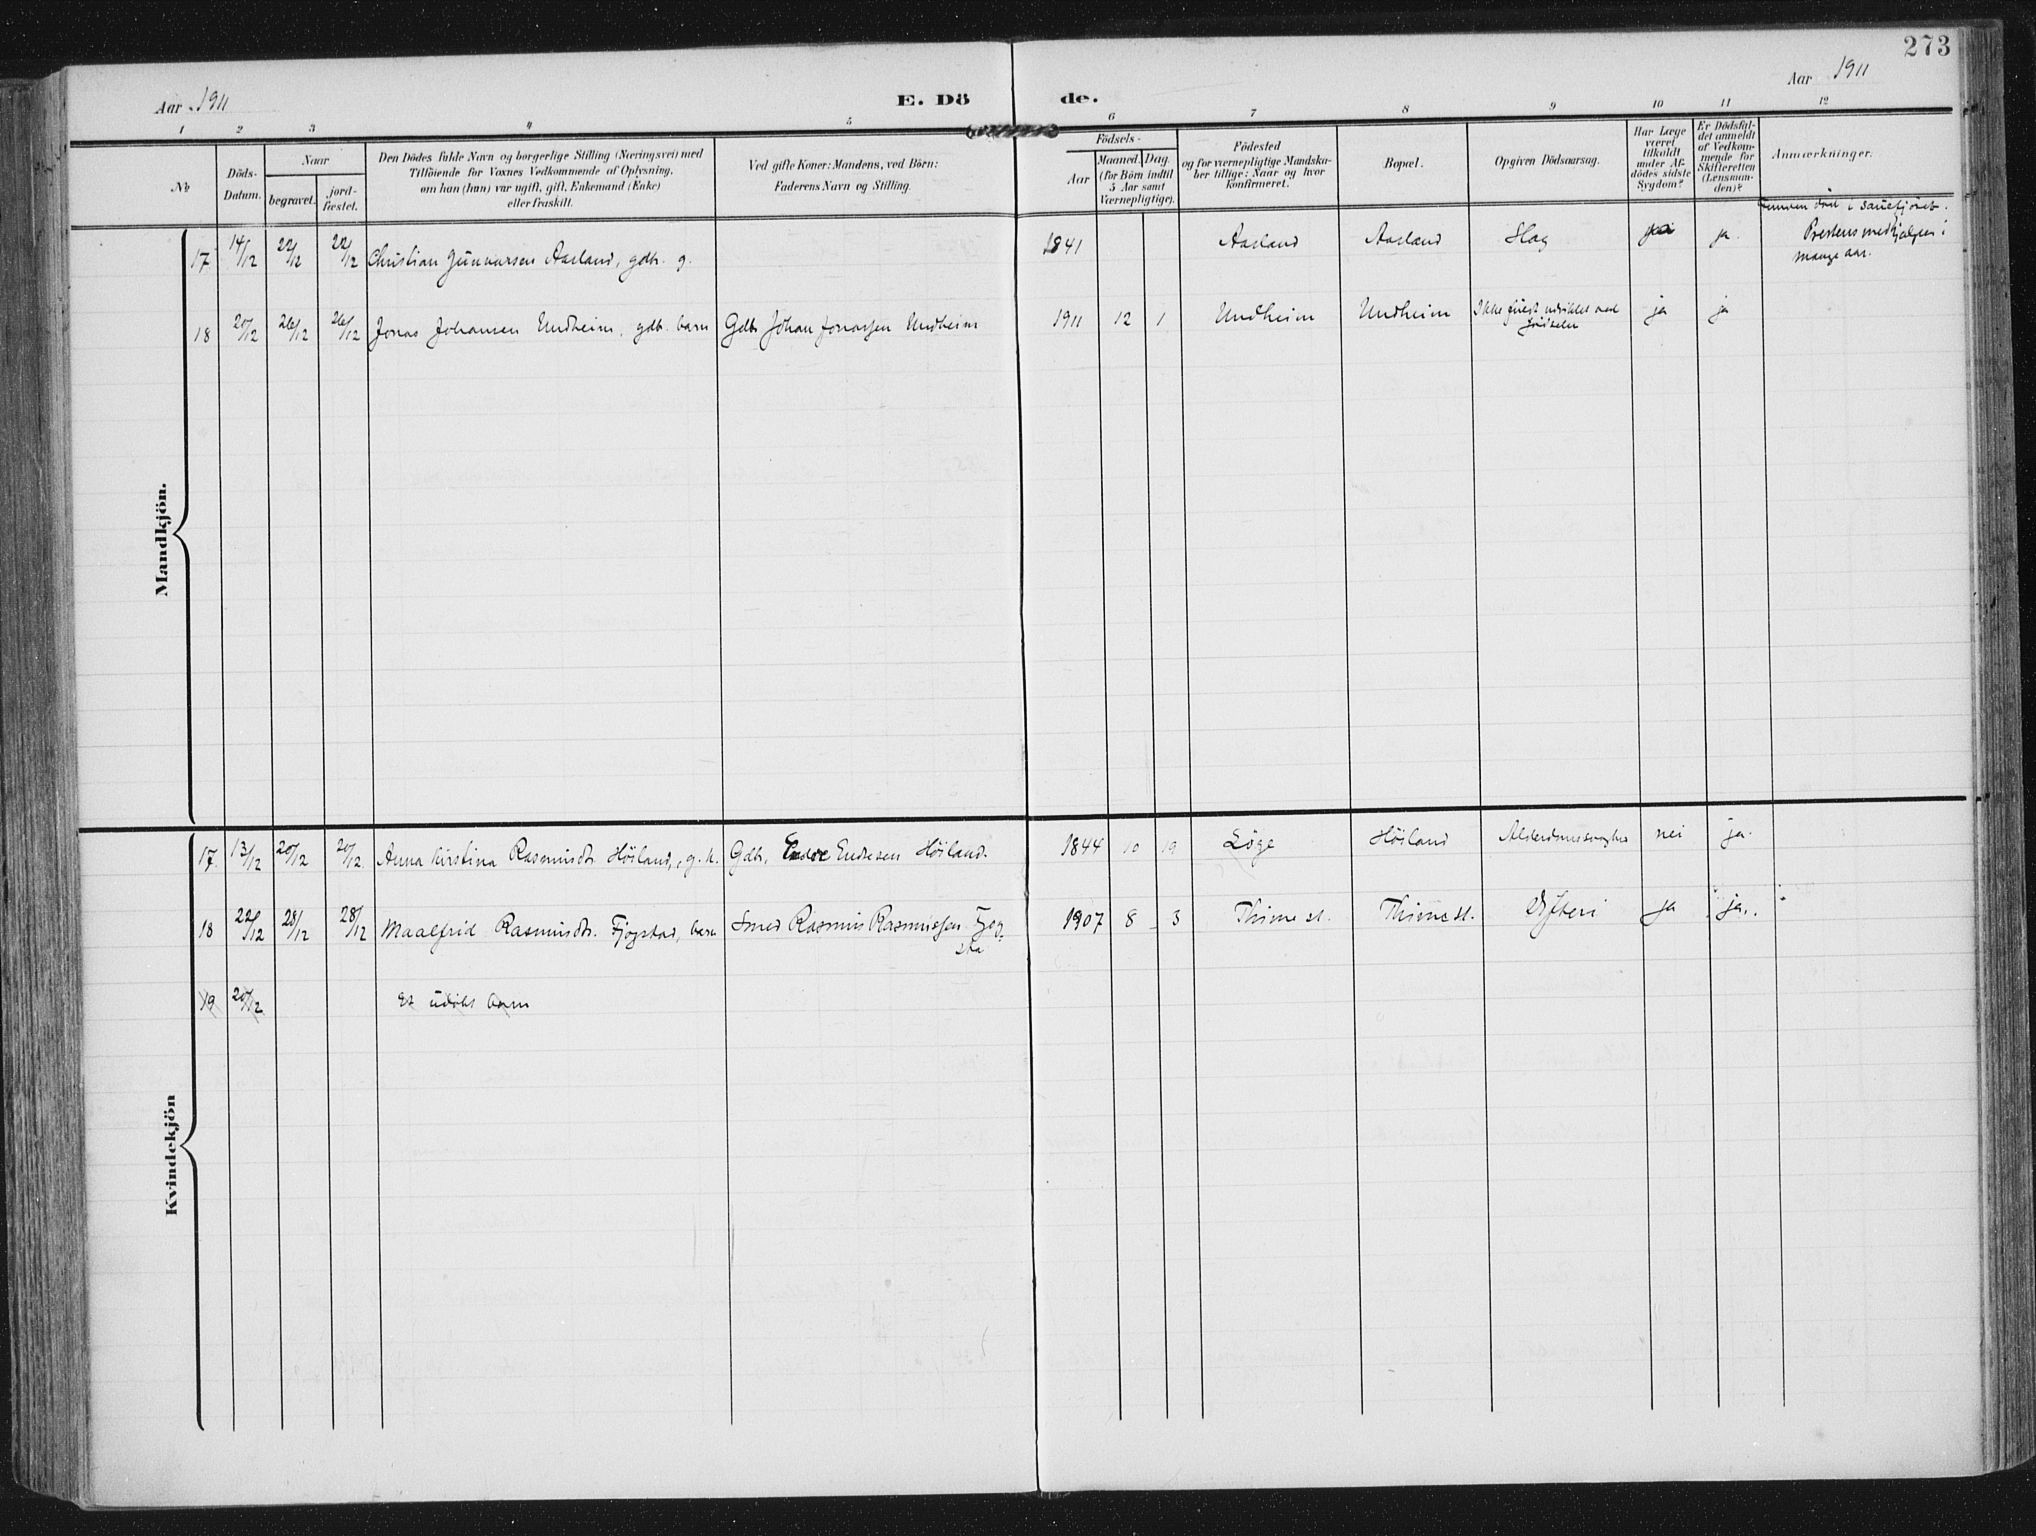 273
Aar 1911
E. Dö de.
Aar 1911
1 2 3 4 5 6 7 8 9 10 11 12
No
Döds-
Datum.
Naar
begravet.
jord-
fæstet.
Den Dödes fulde Navn og borgerlige Stilling (Næringsvei) med
Tilföiende for Voxnes Vedkommende af Oplysning,
om han (hun) var ugift, gift, Enkemand (Enke)
eller fraskilt.
Ved gifte Koner: Mandens, ved Börn:
Faderens Navn og Stilling.
Födsels-
Aar
Maaned. Dag.
(for Börn indtil
5 Aar samt
Værnepligtige).
Födested
og for værnepligtige Mandska-
ber tillige: Naar og hvor
konfirmeret.
Bopæl.
Opgiven Dödsaarsag.
Har Læge
været
tilkaldt
under Af-
dödes sidste
Sygdom?
Er Dödsfal-
det anmeldt
af Vedkom-
mende for
Skifteretten
(Lensman-
den)?
Anmærkninger.
Mandkjön.
17 14/12 22/12 22/12 Christian Gunnarsen Aasland, gdb. g. 1841 Aasland Aasland Slag ja ja. funden död i sauefjöset.
Prestens medhjælper i
mange aar.
18 20/12 26/12 26/12 Jonas Johansen Undheim, gdb. barn Gdb Johan Jonassen Undheim 1911 12 1 Undheim Undheim Ikke fuldt udviklet ved
födselen ja ja
Kvindekjön
17. 13/12 20/12 20/12. Anna Kirstina Rasmusdtr. Höiland, g. k. Gdb. Endre Endresen Höiland. 1844 10 19 Löge Höiland Alderdomssvaghed nei ja.
18 22/12 28/12 28/12 Maalfrid Rasmusdtr. Fjogstad, barn Smed Rasmus Rasmussen Fjog-
stad 1907 8 3 Thime st. Thime st. Dyfteri ja ja.
19 20/12 et udöbt barn